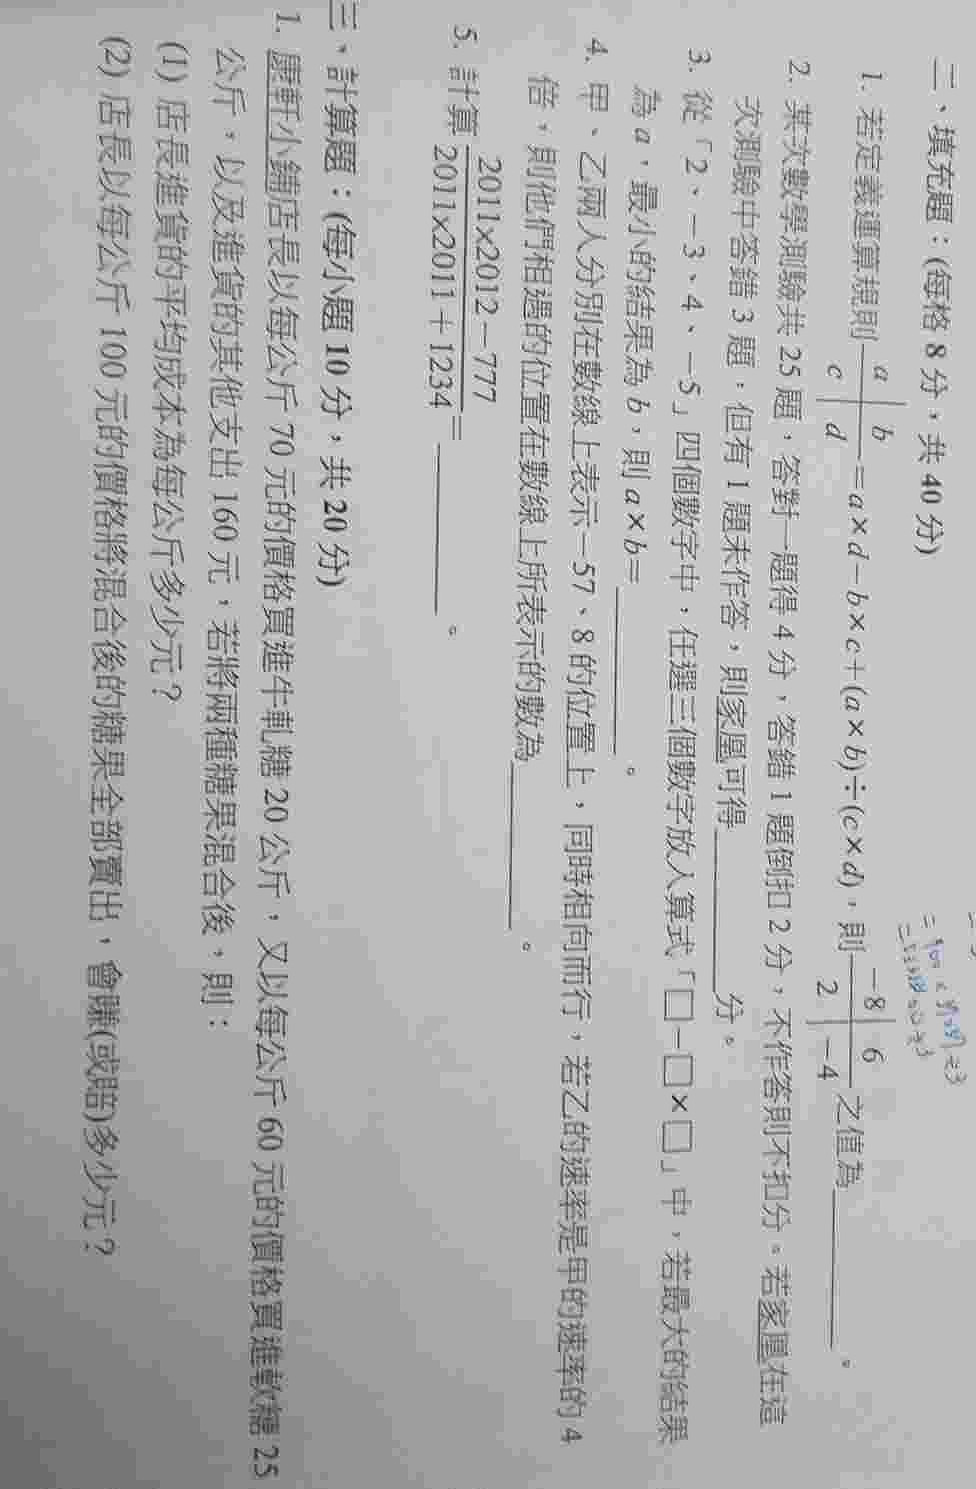 二、填充題：(每格 8 分，共 40 分)
1. 若定義運算規則 a b c d =a×d−b×c+(a×b)÷(c×d)，則 −8 6 2 −4 之值為＿＿＿＿。
2. 某次數學測驗共 25 題，答對一題得 4 分，答錯 1 題倒扣 2 分，不作答則不扣分。若家凰在這
次測驗中答錯 3 題，但有 1 題未作答，則家凰可得＿＿＿＿分。
3. 從「2、−3、4、−5」四個數字中，任選三個數字放入算式「□−□×□」中，若最大的結果
為 a，最小的結果為 b，則 a×b=＿＿＿＿。
4. 甲、乙兩人分別在數線上表示−57、8 的位置上，同時相向而行，若乙的速率是甲的速率的 4
倍，則他們相遇的位置在數線上所表示的數為＿＿＿＿。
5. 計算 2011×2012−777 / 2011×2011+1234 =＿＿＿＿。
三、計算題：(每小題 10 分，共 20 分)
1. 康軒小舖店長以每公斤 70 元的價格買進牛軋糖 20 公斤，又以每公斤 60 元的價格買進軟糖 25
公斤，以及進貨的其他支出 160 元，若將兩種糖果混合後，則：
(1) 店長進貨的平均成本為每公斤多少元？
(2) 店長以每公斤 100 元的價格將混合後的糖果全部賣出，會賺(或賠)多少元？